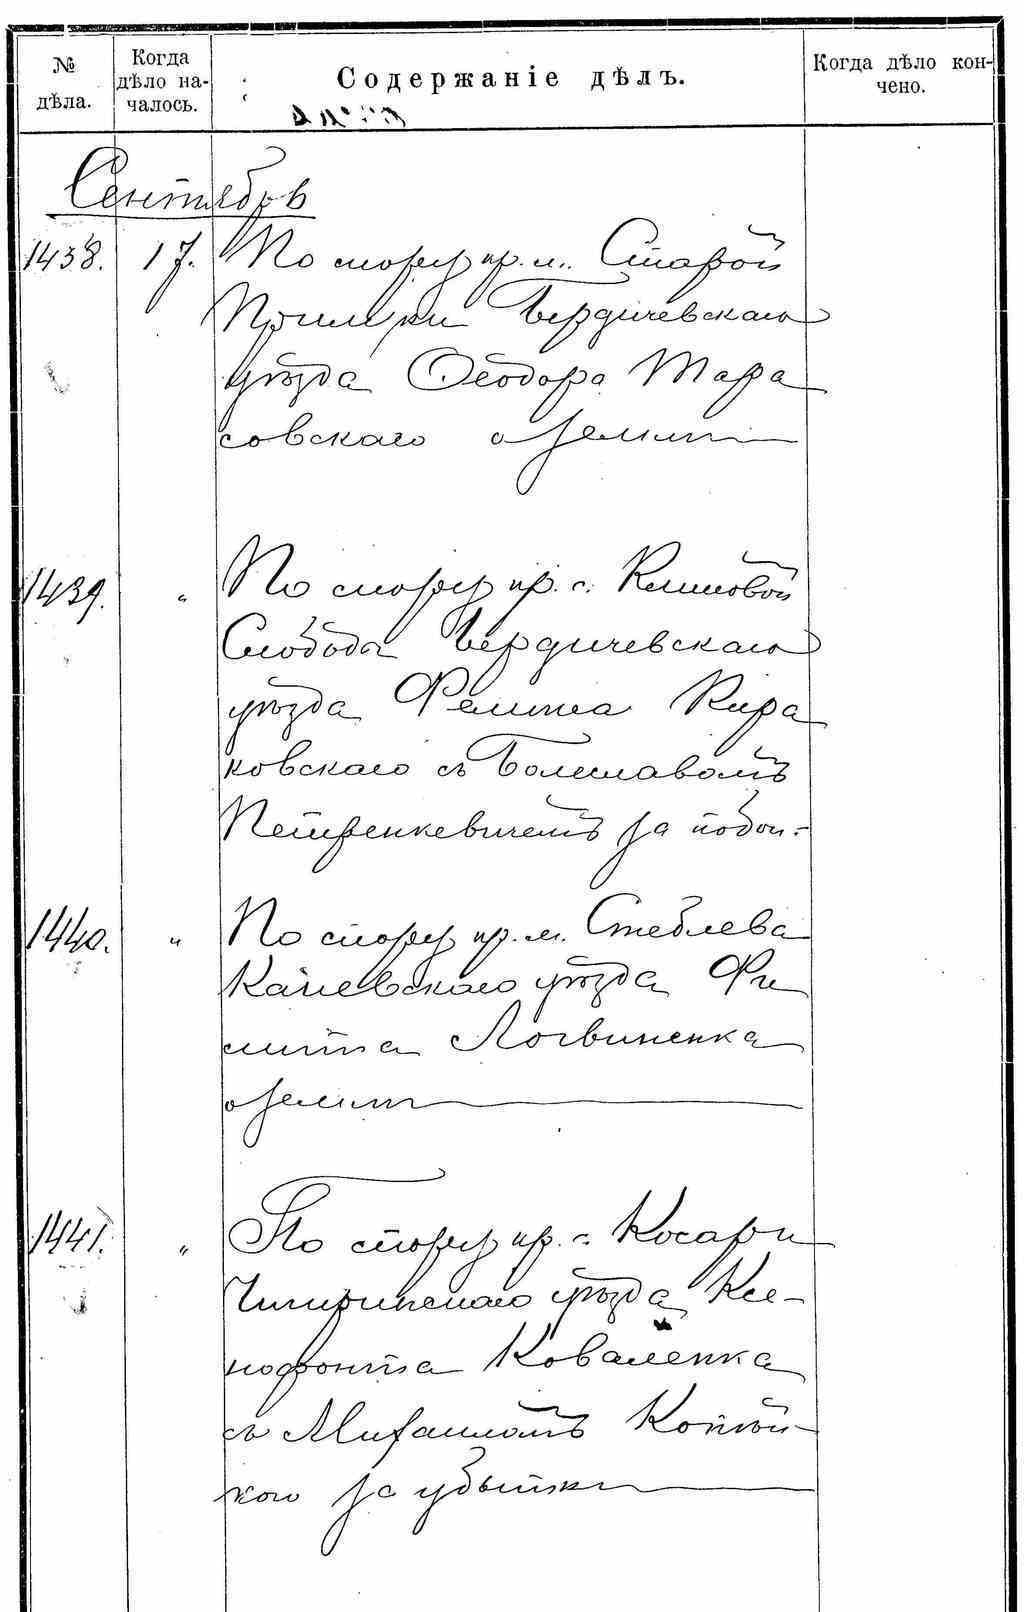 № дѣла.
Когда дѣло на-
чалось.
Содержаніе дѣлъ.
Когда дѣло кон-
чено.
Сентябрь
1438. 17. По спору кр. м. Старой
Прилуки Бердичевскаго
уѣзда Ѳеодора Тара
совскаго о землѣ
1439. " По спору кр. с. Клиновой
Слободы Бердичевскаго
уѣзда Феликса Кира
ковскаго съ Болеславомъ
Петренкевичемъ за побои.
1440. " По спору кр. м. Стеблева
Каневскаго уѣзда Фи
липпа Логвиненка
о землѣ
1441. " По спору кр. с. Косари
Чигиринскаго уѣзда Ксе-
нофонта Коваленка
съ Михаиломъ
каго за убытки